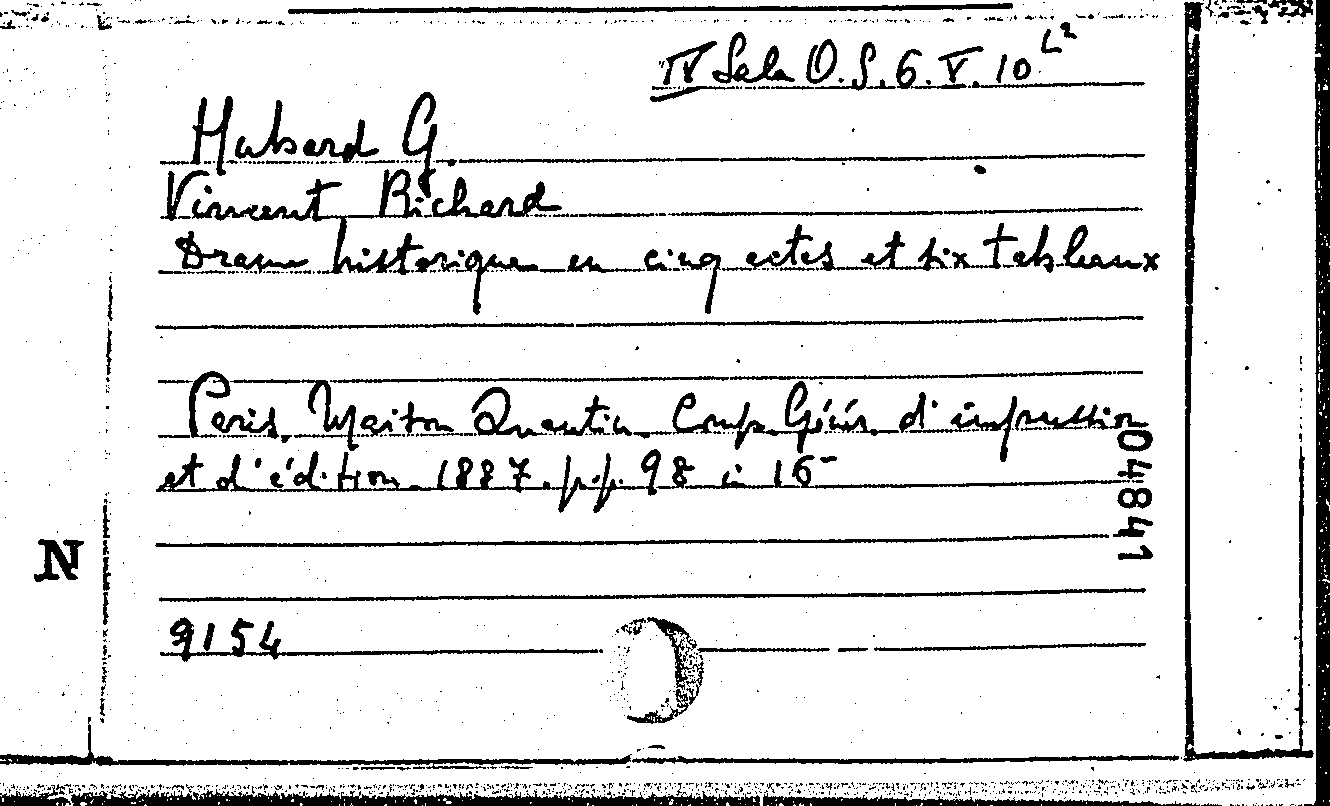 IV Sala O.S. 6. V. 10 L²
Hubard G.
Vincent Richard
Drame historique en cinq actes et six tableaux
Paris. Maison Quantin. Comp. Génér. d'impression
et d'édition. 1887. p.p. 98 in 16-
04841
N
9154